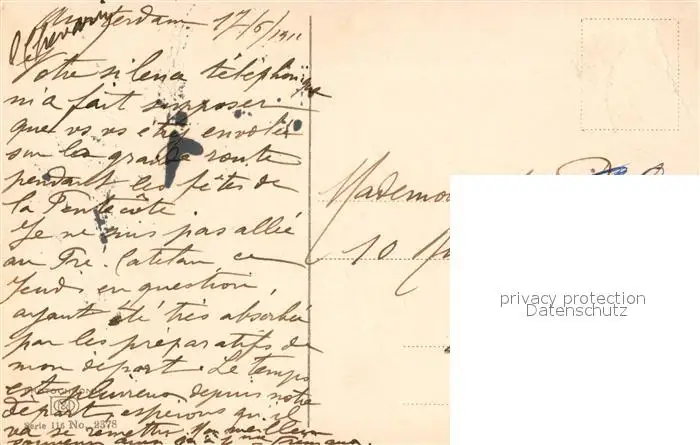 Amsterdam 17/6/1911
Votre silence téléphonique
m'a fait supposer
que vs vs êtes envolés
sur la grande route
pendant les fêtes de
la Pentecôte.
Je ne suis pas allée
au Pré. Catelan ce
Jeudi en question,
ayant été très absorbée
par les préparatifs de
mon départ. Le temps
est pluvieux depuis notre
départ, espérons qu'il
va se remettre. Mon meilleur
souvenir ainsi qu'à
Série 116 No. 2378
Mademoi
10
privacy protection
Datenschutz